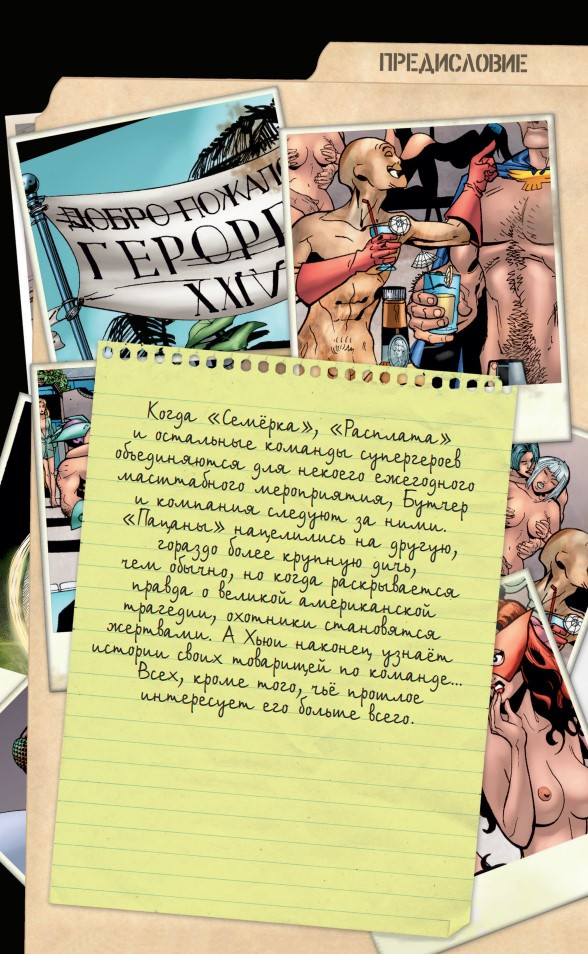 ПРЕДИСЛОВИЕ
ДОБРО ПОЖАЛ
ГЕРОГ
XXIV
Когда «Семёрка», «Расплата»
и остальные команды супергероев
объединяются для некоего ежегодного
масштабного мероприятия, Бутчер
и компания следуют за ними.
«Пацаны» нацелились на другую,
гораздо более крупную дичь,
чем обычно, но когда раскрывается
правда о великой американской
трагедии, охотники становятся
жертвами. А Хьюи наконец узнаёт
истории своих товарищей по команде...
Всех, кроме того, чьё прошлое
интересует его больше всего.